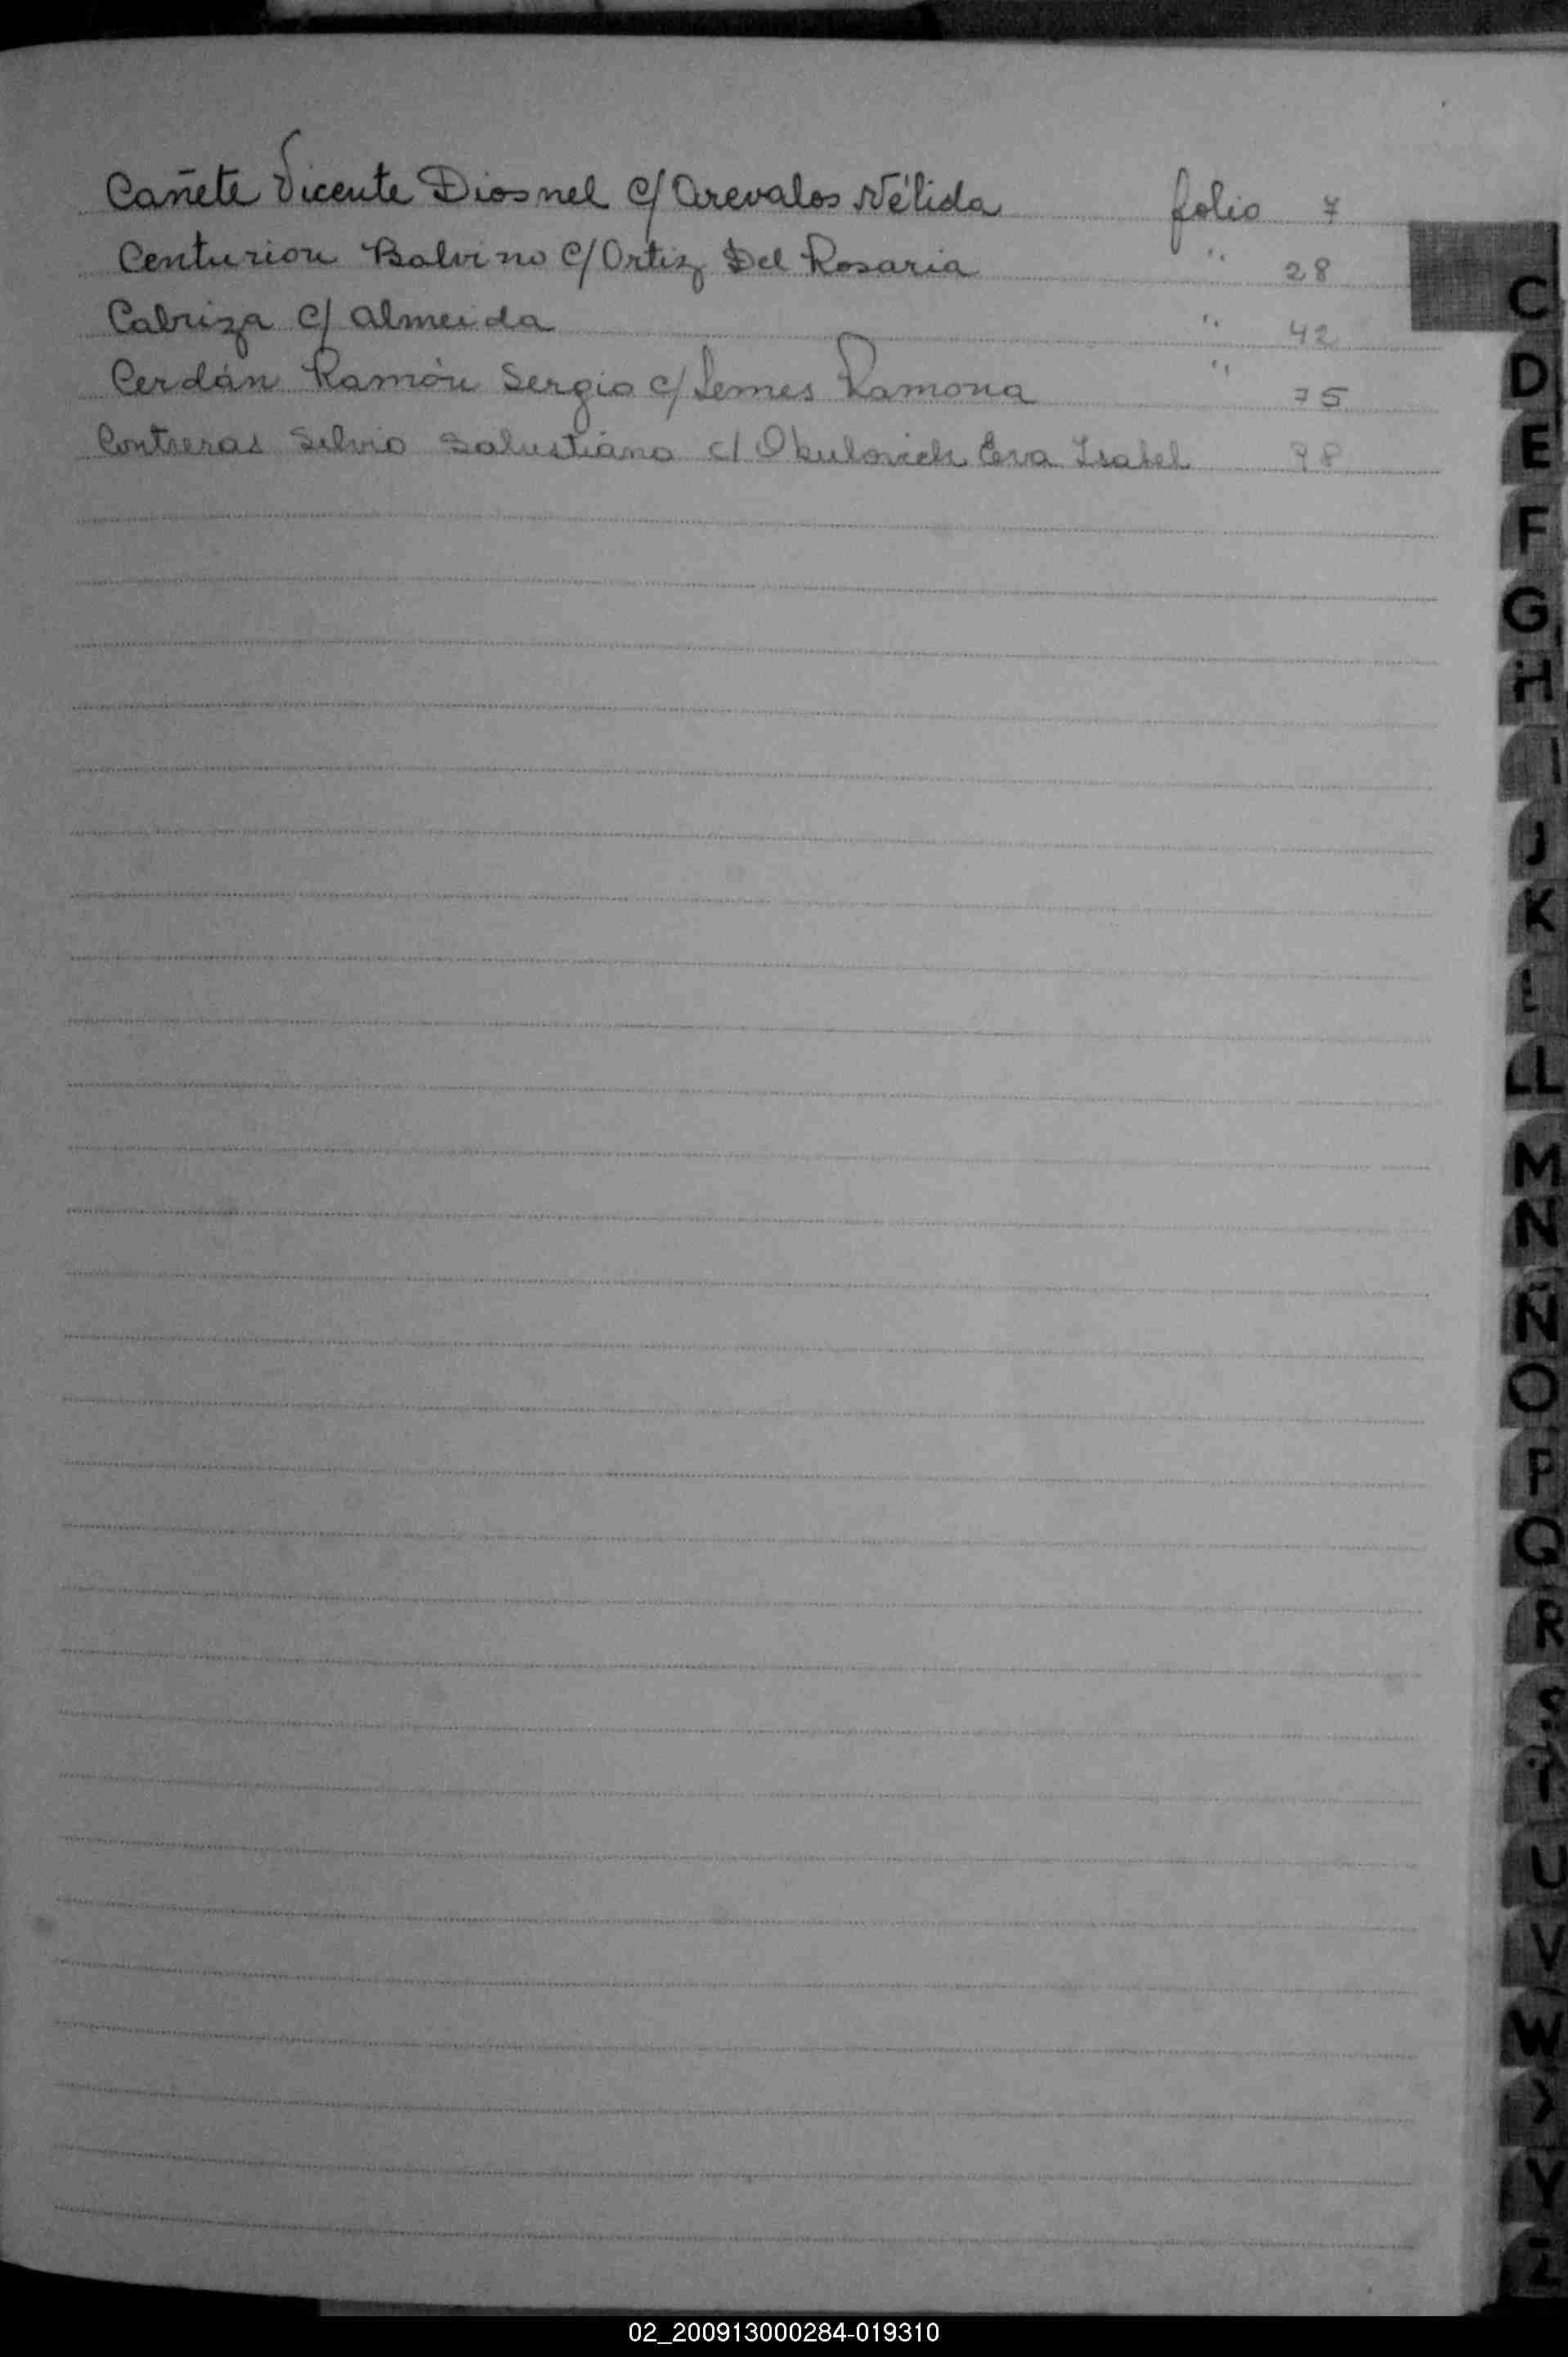 Cañete Vicente Diosnel c/ Arevalos Nélida folio 7
Centurion Balvino c/ Ortiz Del Rosaria " 28
Cabriza c/ Almeida " 42
Cerdán Ramón Sergio c/ Lemes Ramona " 75
Contreras Silvio Salustiano c/ Okulovich Eva Isabel 98
C
D
E
F
G
H
I
J
K
L
LL
M
N
Ñ
O
P
Q
R
S
T
U
V
W
Y
Z
02_200913000284-019310